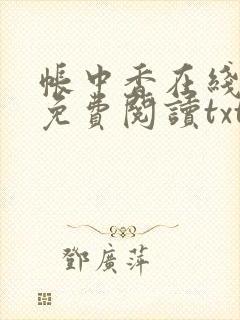 帳中香在綫
免費閱讀txt
鄧廣萍